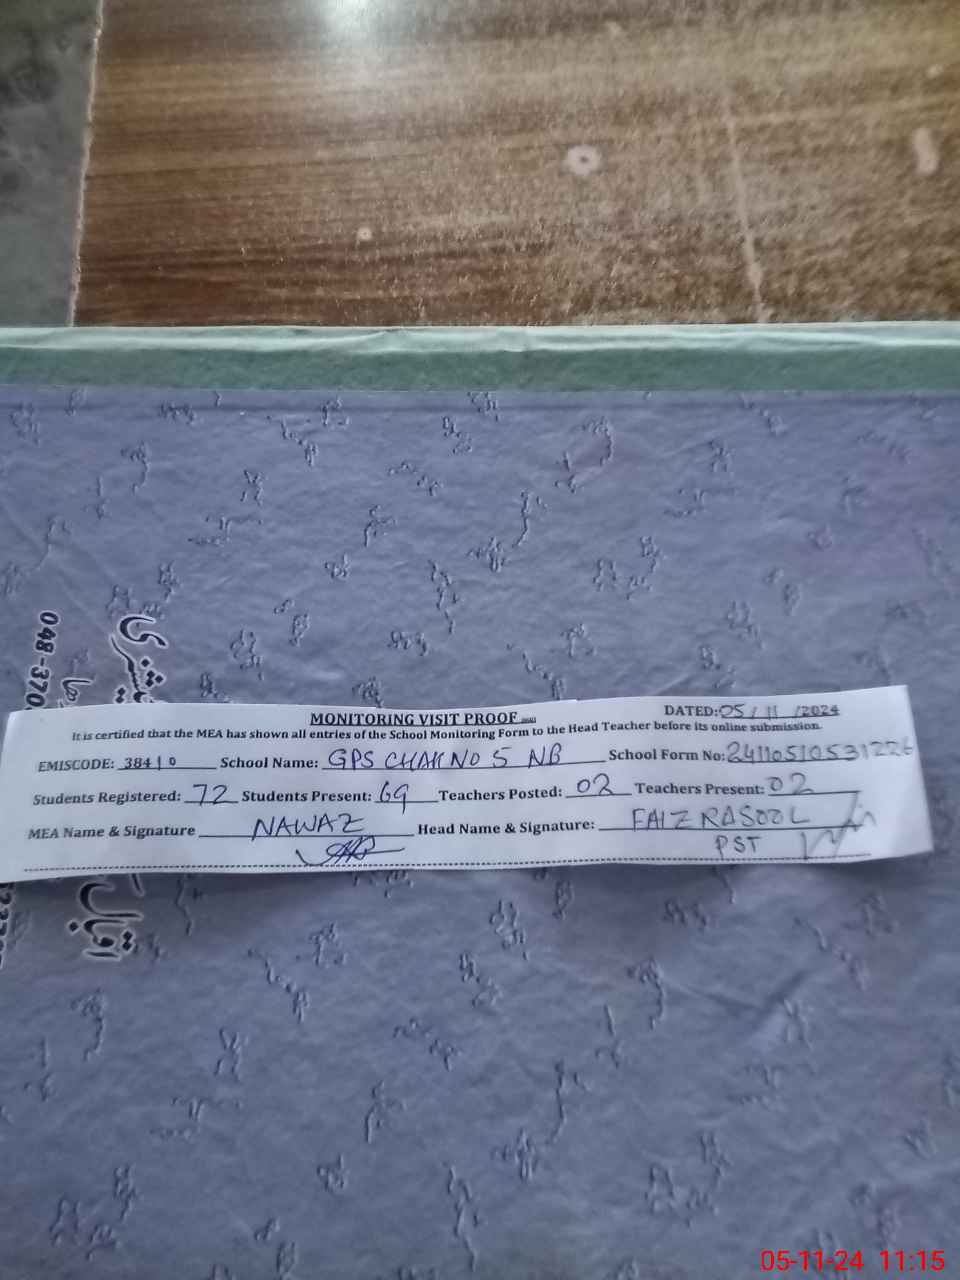 048-370
MONITORING VISIT PROOF
DATED: 05/11/2024
It is certified that the MEA has shown all entries of the School Monitoring Form to the Head Teacher before its online submission.
EMISCODE: 38410 School Name: GPS CHAK NO 5 NB School Form No: 24110510531226
Students Registered: 72 Students Present: 69 Teachers Posted: 02 Teachers Present: 02
MEA Name & Signature NAWAZ Head Name & Signature: FAIZ RASOOL
PST
اقبال
05-11-24 11:15